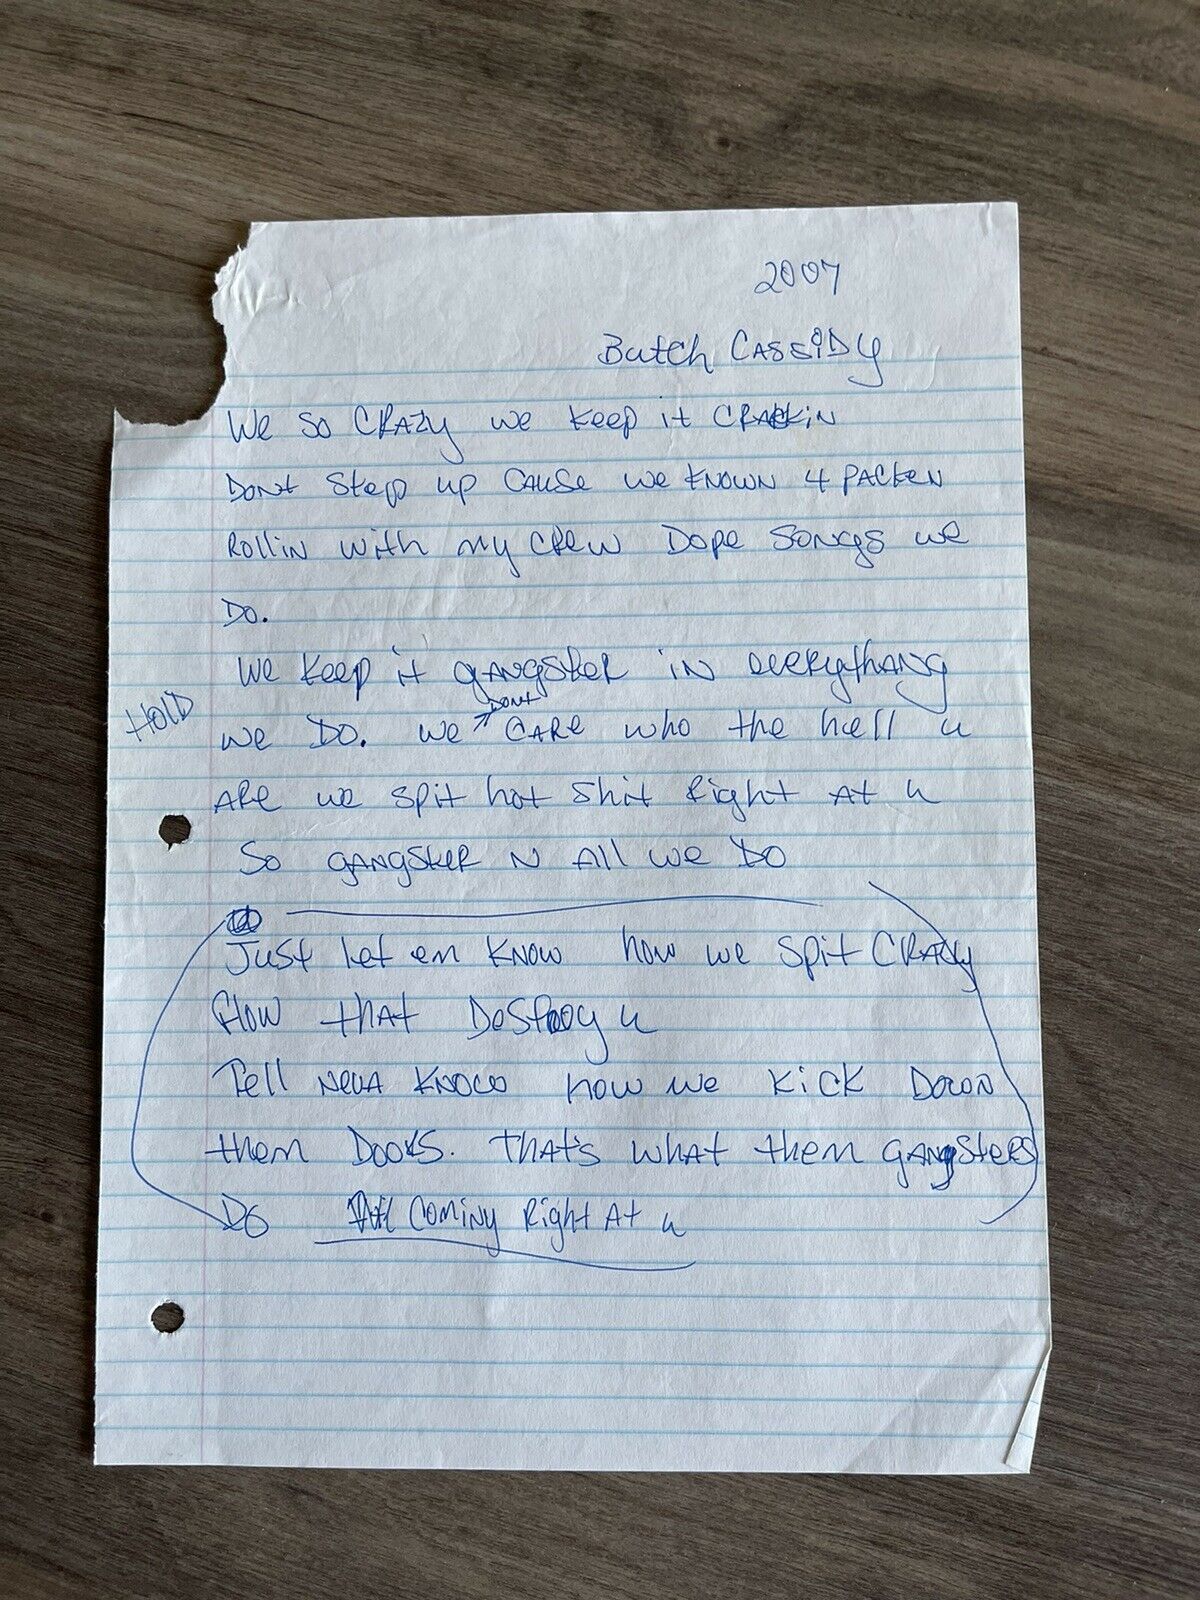 2007
Butch CASSiDy
We so CRAZy we keep it CRACKiN
DONt Step up CAUSE we KNOWN 4 PACKEN
Rollin with my CREW Dope Songs we
Do.
We keep it gANgSteR iN everythANg
HOLD
we Do. we DONt CARe who the hell u
ARe we spit hot shit Right At u
So gANgSteR N All we Do
Just let em KNOW how we spit CRAZy
flow that DeStRoy u
Tell NevA KNOW how we KiCK DowN
them DOORS. thAt's whAt them gANgSteRS
Do Coming Right At u